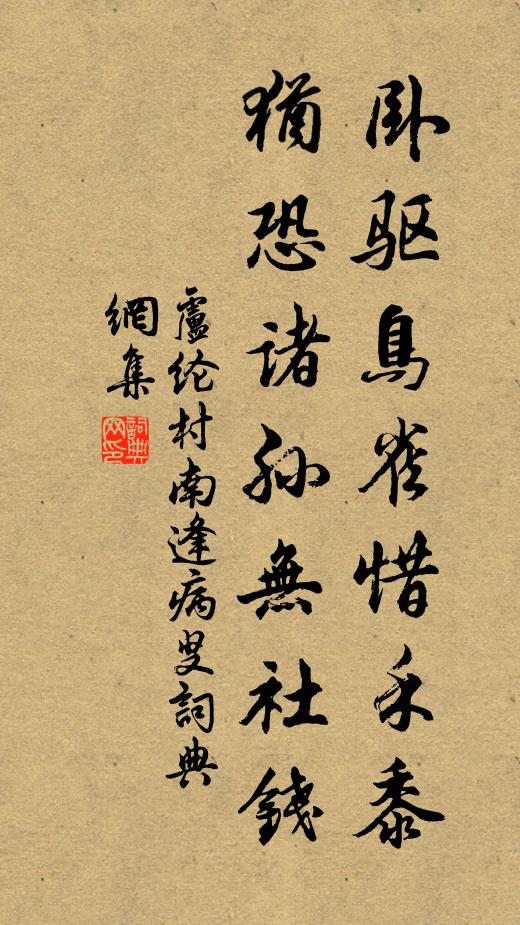 卧驱鳥雀惜禾黍
猶恐諸孫無社錢
盧纶村南逢病叟詞典
網集
詞典
网印